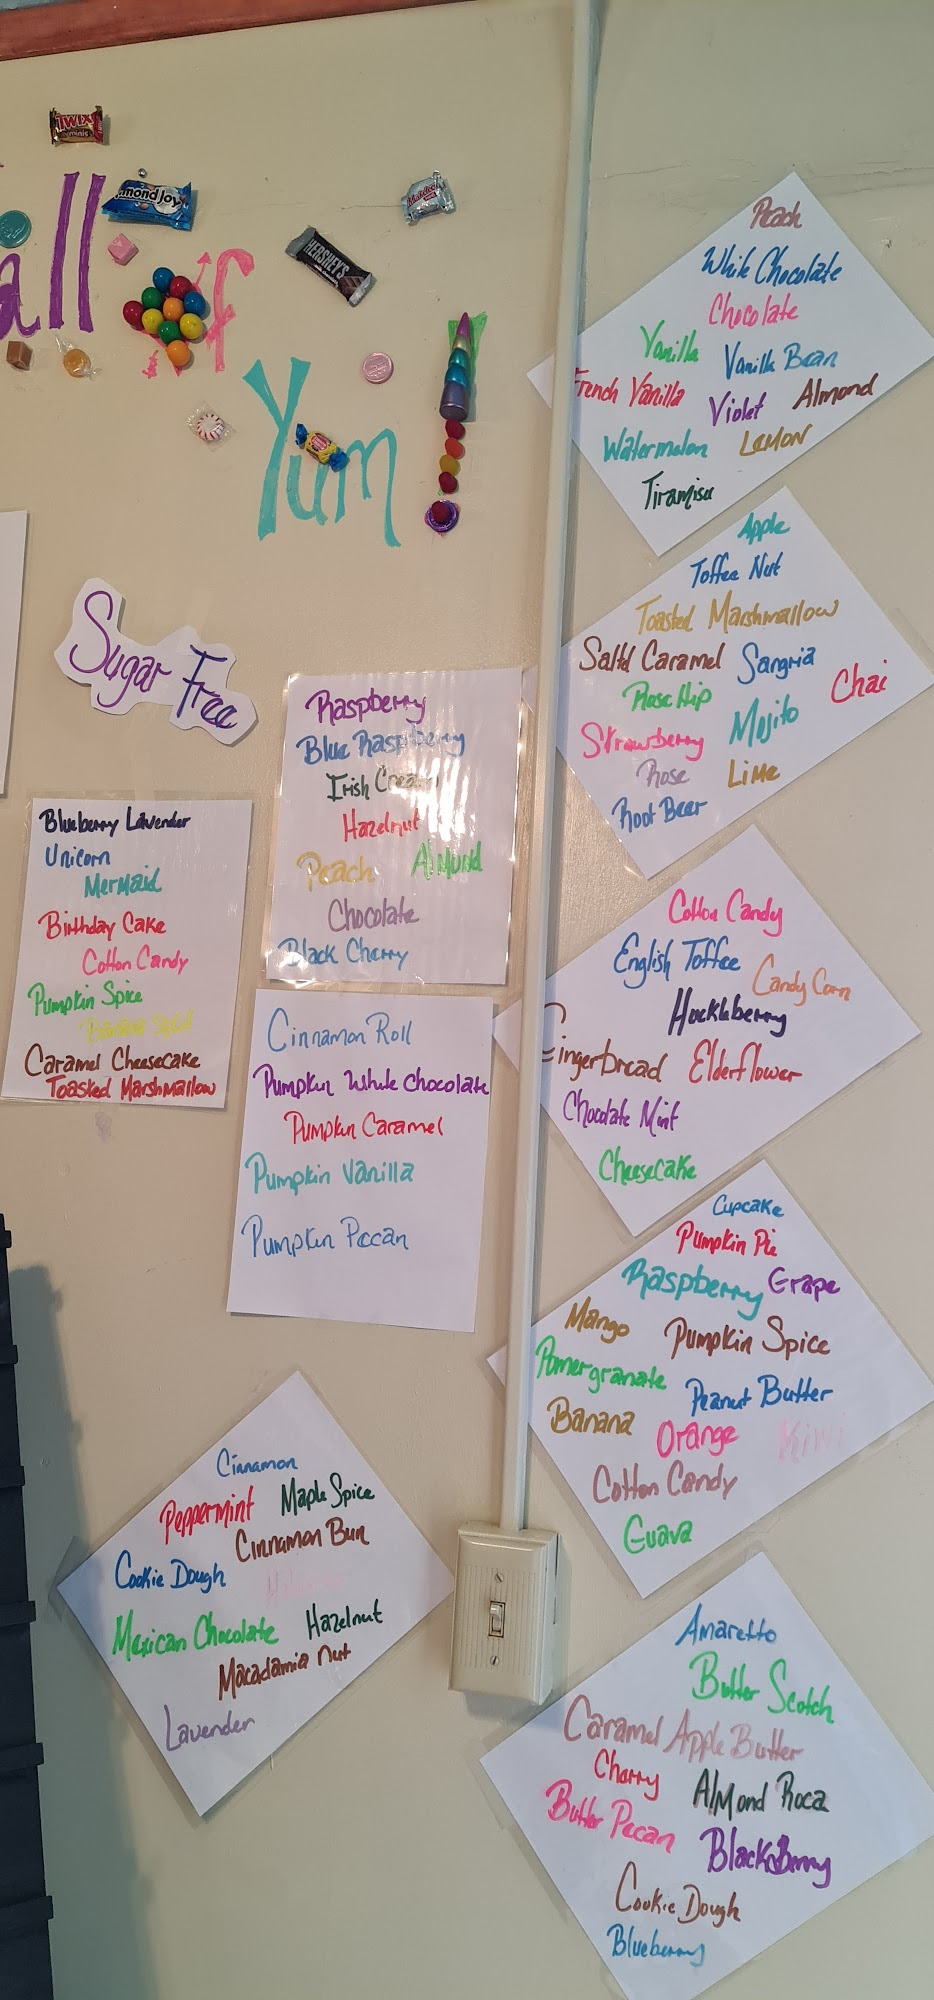 TWIX
minis
mond Joy
HERSHEY'S
all of
Yum!
Sugar Free
Blueberry Lavender
Unicorn
Mermaid
Birthday Cake
Cotton Candy
Pumpkin Spice
Banana Split
Caramel Cheesecake
Toasted Marshmallow
Raspberry
Blue Raspberry
Irish Cream
Hazelnut
Peach Almond
Chocolate
Black Cherry
Cinnamon Roll
Pumpkin White Chocolate
Pumpkin Caramel
Pumpkin Vanilla
Pumpkin Pecan
Cinnamon
Peppermint Maple Spice
Cinnamon Bun
Cookie Dough
Mexican Chocolate Hazelnut
Macadamia nut
Lavender
Peach
White Chocolate
Chocolate
Vanilla Vanilla Bean
French Vanilla Violet Almond
Watermelon Lemon
Tiramisu
Apple
Toffee Nut
Toasted Marshmallow
Saltd Caramel Sangria
Rose Hip Chai
Strawberry Mojito
Rose Lime
Root Beer
Cotton Candy
English Toffee
Candy Corn
Huckleberry
Gingerbread Elderflower
Chocolate Mint
Cheesecake
Cupcake
Pumpkin Pie
Raspberry Grape
Mango Pumpkin Spice
Pomergranate Peanut Butter
Banana Orange Kiwi
Cotton Candy
Guava
Amaretto
Butter Scotch
Caramel Apple Butter
Cherry Almond Roca
Butter Pecan BlackBerry
Cookie Dough
Blueberry